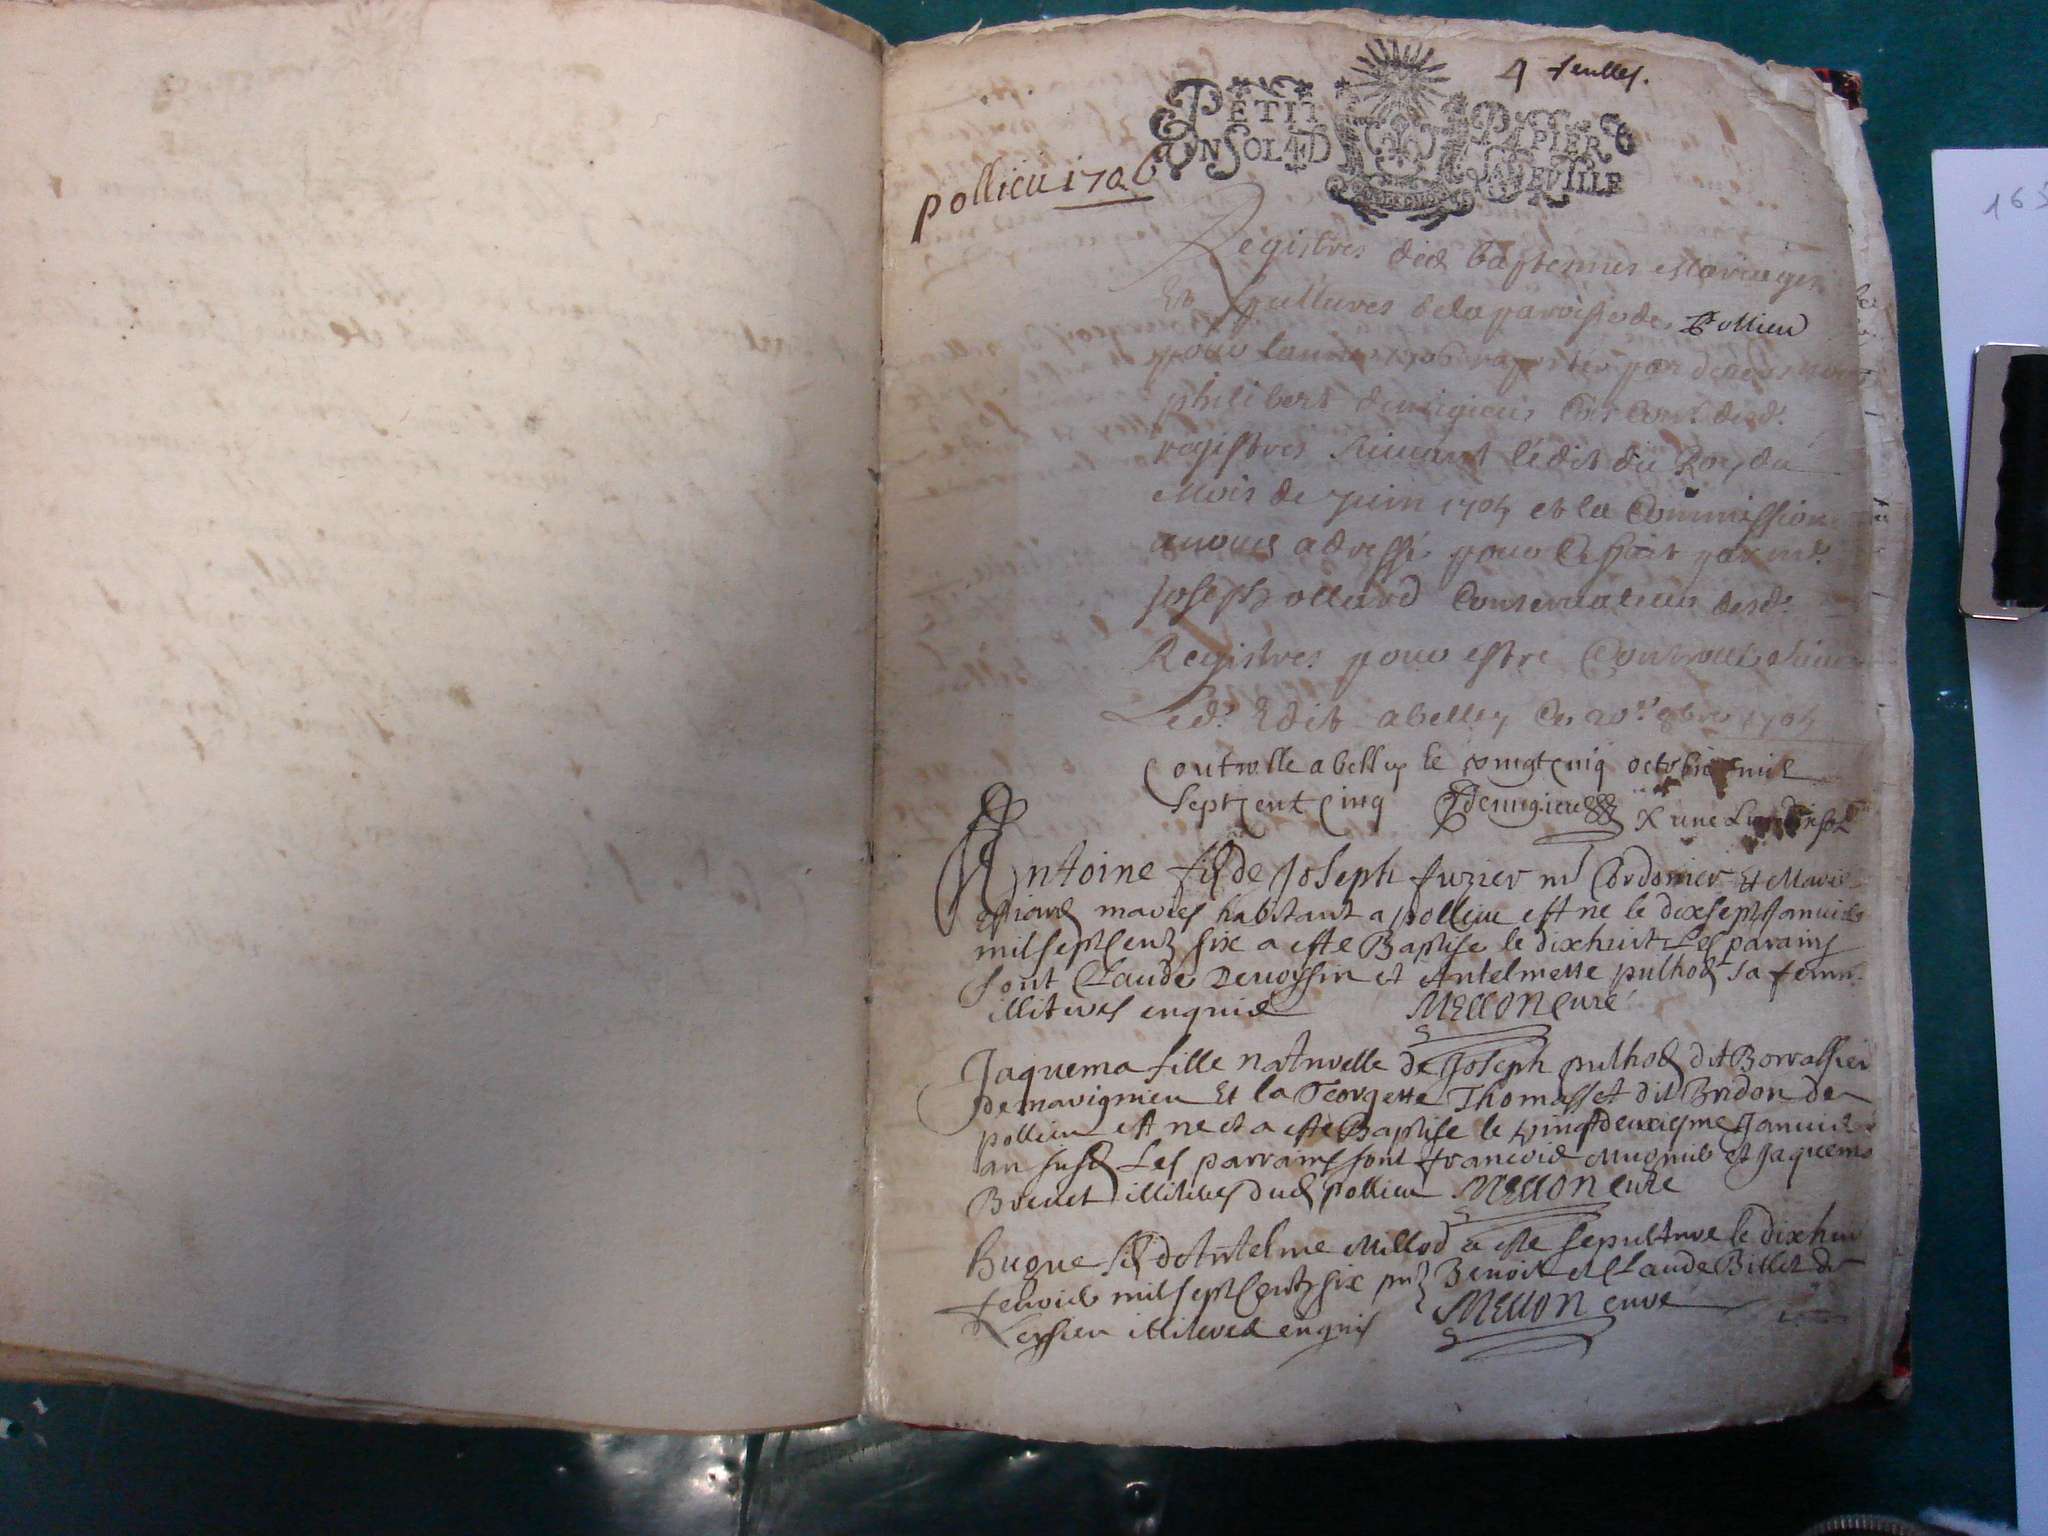 4 feulles.
PETIT PAPIER
UN SOL 4 D LA FEUILLE
pollieu 1706
Registres des baptesmes mariages
Et sepultures de la paroisse de Pollieu
pour lannee 1706 par
philibert demigieu desd.
registres suivant l'édit du Roy du
Mois de Juin 1705 et la Commission
a nous adressé pour Ce fait par me.
Joseph ollard Conservateur desd.
Registres pour estre Controllé
Led. Edit a belley Ce 20e 8bre 1705
Controlle a belley le vingt cinq octobre mil
sept cent cinq Demigieu X une Livre
Antoine fils de Joseph fuzier me Cordonier Et Marie
maries habitant a pollieu est ne le dix sept Janvier
mil sept Cent six a este Baptise le dixhuit Les parains
sont Claude Devossin et Antelmette pulhod sa femme
illiteres enquis MELLON Curé
Jaquema fille naturelle de Joseph pulhod dit Borrassier
de navignieu Et la George​tte Thomasset dit Bridon de
pollieu est ne et a este Baptise le vingt deuxiesme Janvier
an susd Les parrains sont francois Mugnier et Jaquema
Brevet illiteres dud pollieu MELLON Curé
Hugue fils dAntelme Millod a este sepulture le dixhuit
fevrier mil sept Cent six pnt Benoit et Claude Billiet de
Leyssieu illiteres enquis MELLON curé
165